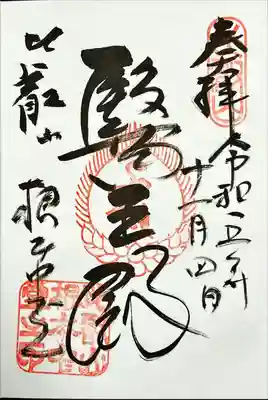 奉拝
令和五年
十一月四日
醫王殿
比叡山 根本中堂